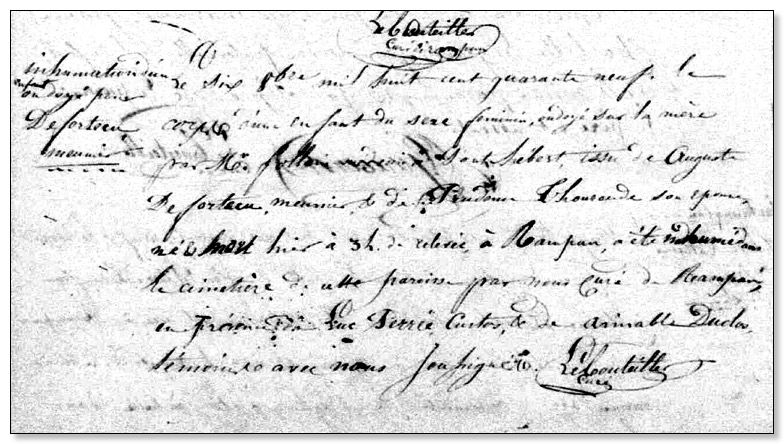 LeBouteiller
Curé de rampan
inhumation d'un
enfant
ondoyé pour
Defortecu
meunier
Le six 8bre mil huit cent quarante neuf. le
corps d'une enfant du sexe féminin, ondoyé sur la mère
par Mr. follain à Saint hébert, issu de Auguste
Defortecu, meunier, & de Prudence Lhourende son epouse
né & mort hier à 3h. de relevée, à Rampan, a été inhumé dans
le cimetière de cette paroisse par nous Curé de Rampan,
en présence de Luc Perrée Custos, & de aimable Duclos,
témoins avec nous soussignés. LeBouteiller
Curé